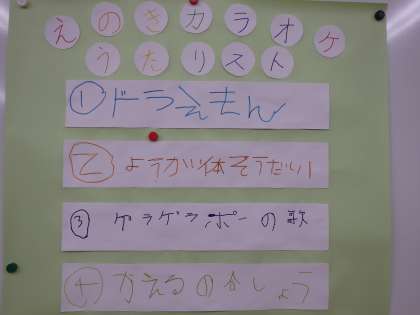 えのきカラオケ
うたリスト
①ドラえもん
②ようかい体そうだい1
③ゲラゲラポーの歌
④かえるのがっしょう